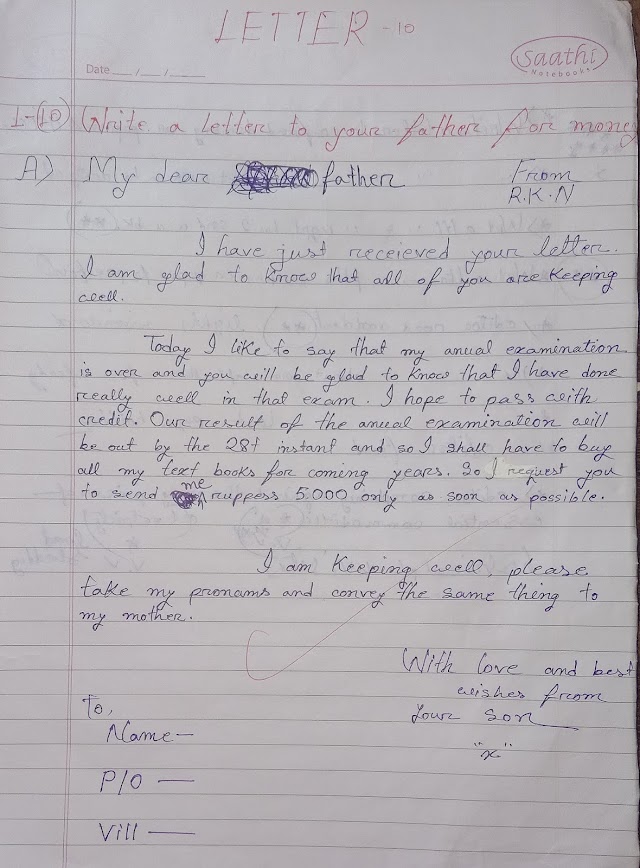 LETTER - 10
Date ___/___/____
Saathi
Notebook
L-(10) Write a letter to your father for money
A) My dear father
From
R.K.N
I have just receieved your letter.
I am glad to know that all of you are keeping
well.
Today I like to say that my anual examination
is over and you will be glad to know that I have done
really well in that exam. I hope to pass with
credit. Our result of the anual examination will
be out by the 28t instant and so I shall have to buy
all my text books for coming years. So I request you
to send me ruppess 5000 only as soon as possible.
I am keeping well, please
take my pronams and convey the same thing to
my mother.
With love and best
wishes from
Your son
"x"
To,
Name—
P/O —
Vill —